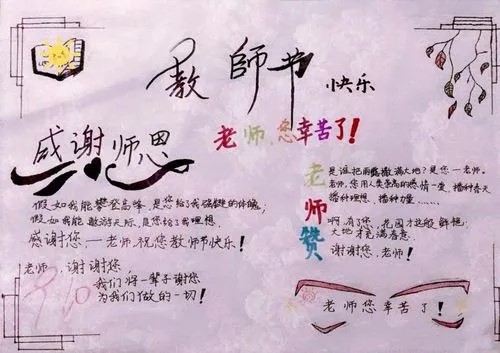 教師节
快乐
老师,您幸苦了!
感谢师恩
假如我能攀登高峰,是您给了我强健的体魄,
假如我能遨游天际,是您给了我理想,
感谢您—老师,祝您教师节快乐!
老师,谢谢您,
我们将一辈子谢您
为我们做的一切!
9.10
老师赞
是谁把雨露撒满大地?是您—老师。
老师,您用人类崇高的感情—爱,播种春天
播种理想、播种力量……
啊,有了您,花园才这般鲜艳,
大地才充满春意
谢谢您,老师!
老师您幸苦了!